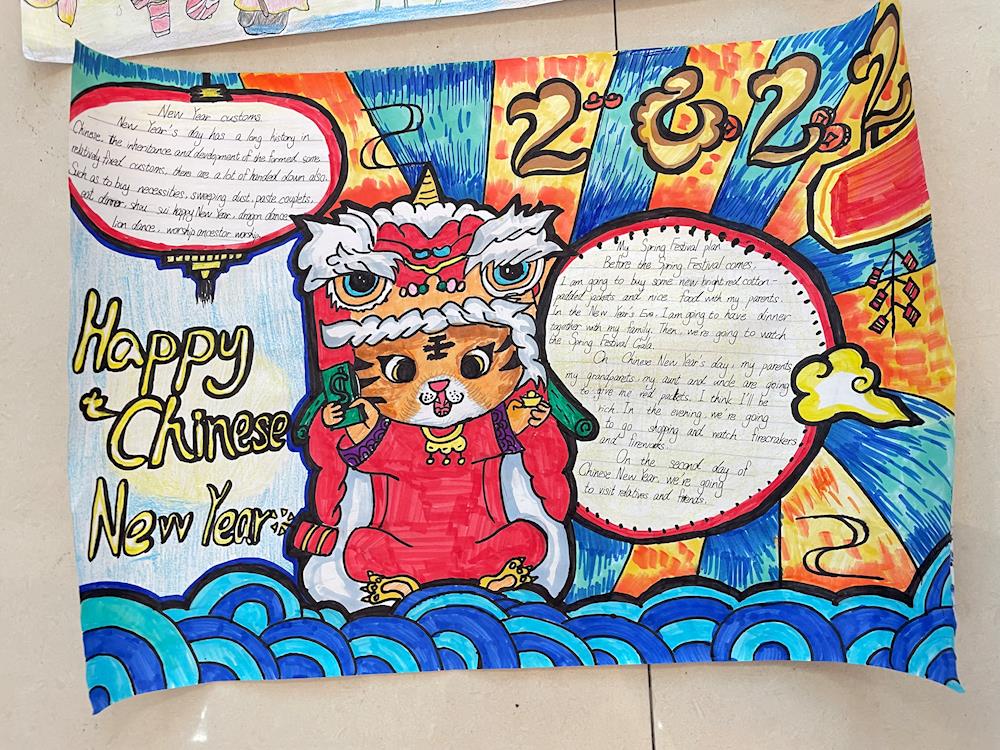 New Year customs.
New Year's day has a long history in
Chinese. the inheritance and development of the formed some
relatively fixed customs, there are a lot of handed down also.
Such as to buy necessities, sweeping dust, paste couplets,
eat dinner, shou sui happy New Year, dragon dance
lion dance, worship ancestor worship
2022
Happy
Chinese
New Year
$
My Spring Festival plan
Before the Spring Festival comes,
I am going to buy some new bright red cotton-
padded jackets and nice food with my parents.
In the New Year's Eve. I am going to have dinner
together with my family. Then, we're going to watch
the Spring Festival Gala.
On Chinese New Year's day, my parents
my grandparets, my aunt and uncle are going
to give me red packets. I think I'll be
rich. In the evening, we're going
to go shopping and watch firecrakers
and fireworks.
On the second day of
Chinese New Year, we're going
to visit relatives and friends.